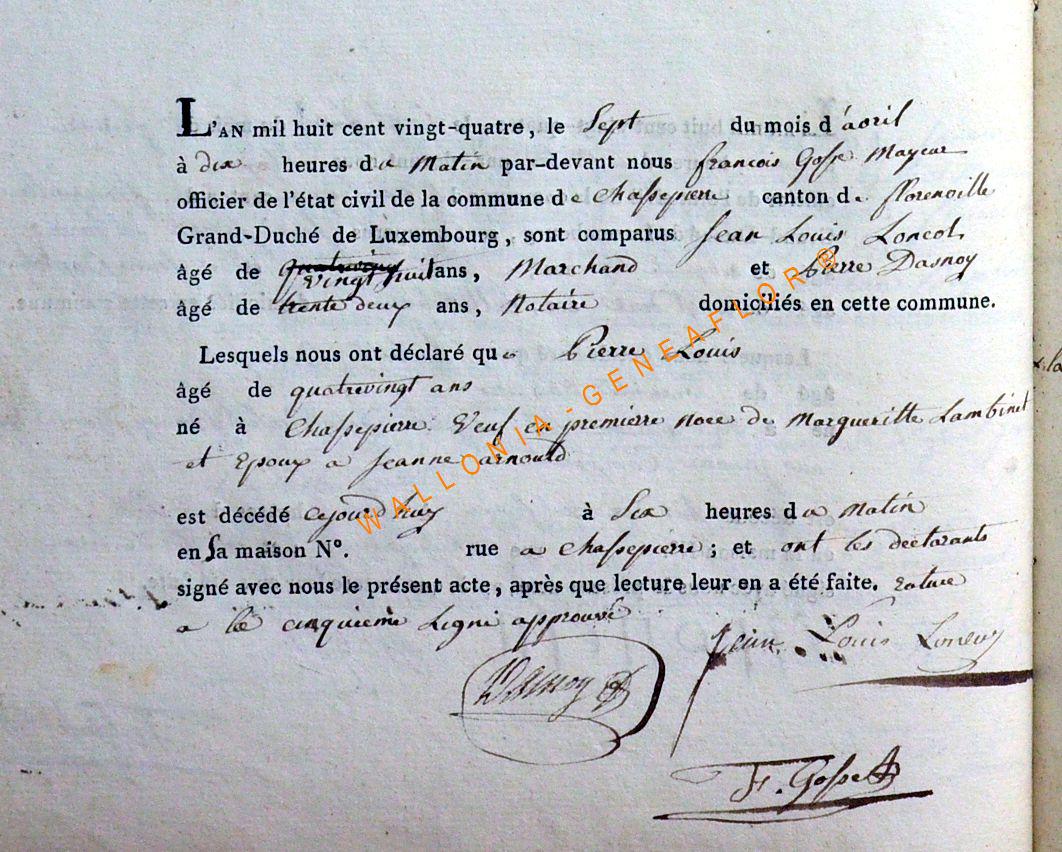 L'AN mil huit cent vingt-quatre, le Sept du mois d'avril
à dix heures du Matin par-devant nous françois Gosse Mayeur
officier de l'état civil de la commune de Chassepierre canton de florenville
Grand-Duché de Luxembourg, sont comparus Jean Louis Loncol
âgé de vingt huit ans, Marchand et Pierre Dasnoy
âgé de trente deux ans, Notaire domiciliés en cette commune.
Lesquels nous ont déclaré que Pierre Louis
âgé de quatrevingt ans
né à Chassepierre Veuf en premierre noce de Margueritte Lambinet
et Epoux a Jeanne arnould
est décédé cejourd'huy à Six heures du matin
en Sa maison N°. rue a Chassepierre ; et ont les déclarants
signé avec nous le présent acte, après que lecture leur en a été faite. rature
a la cinquieme Ligne approuvé
Jean Louis
Dasnoy
F. Gosse
WALLONIA-GENEAFLOR®